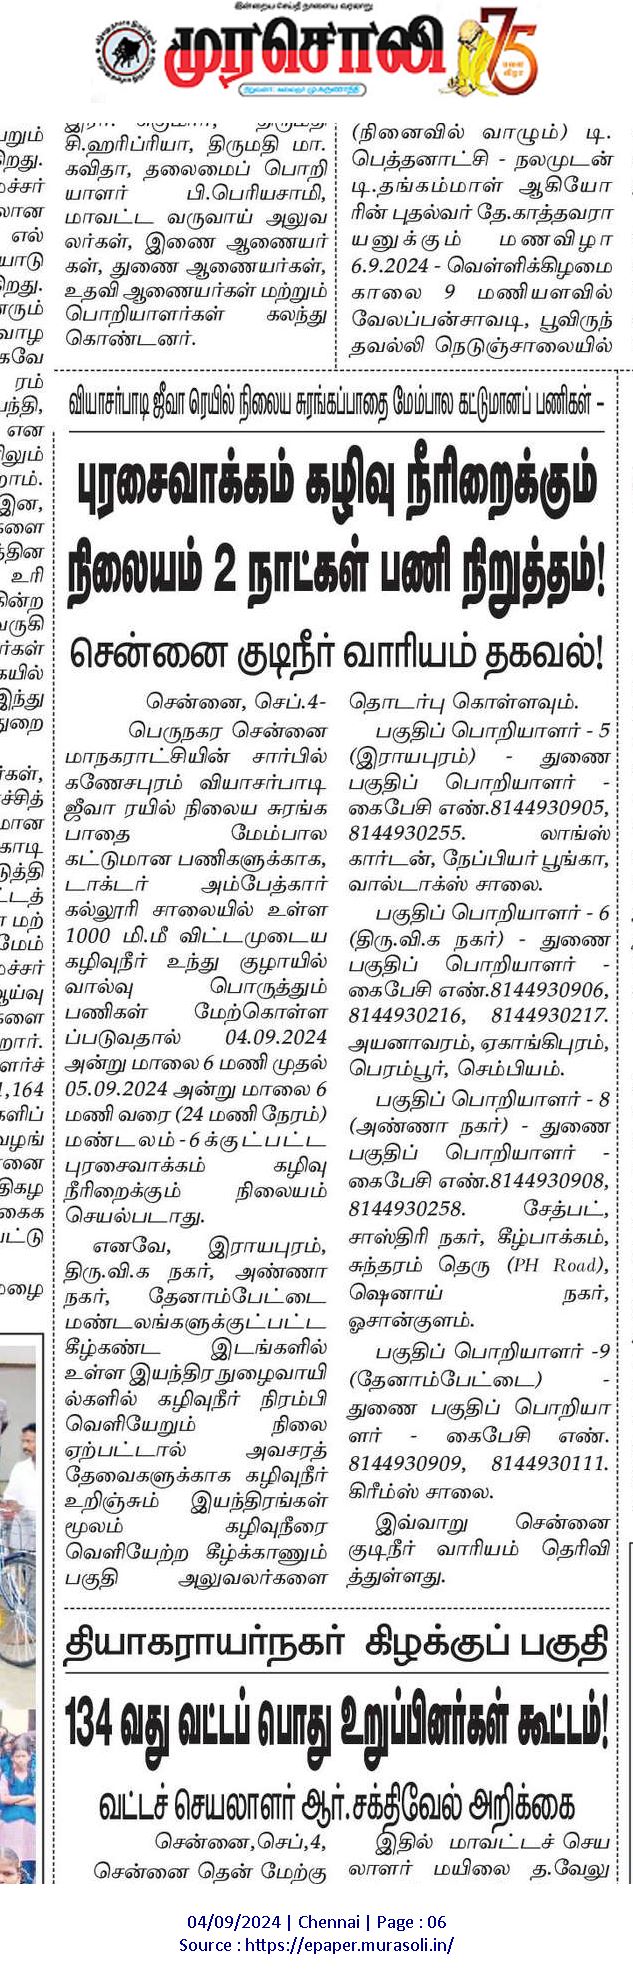 இன்றைய செய்தி நாளைய வரலாறு
முரசொலி
75
நிறுவனர்: கலைஞர் மு.கருணாநிதி
சி.ஹரிப்ரியா, திருமதி மா.
கவிதா, தலைமைப் பொறி
யாளர் பி.பெரியசாமி,
மாவட்ட வருவாய் அலுவ
லர்கள், இணை ஆணையர்
கள், துணை ஆணையர்கள்,
உதவி ஆணையர்கள் மற்றும்
பொறியாளர்கள் கலந்து
கொண்டனர்.
(நினைவில் வாழும்) டி.
பெத்தனாட்சி - நலமுடன்
டி.தங்கம்மாள் ஆகியோ
ரின் புதல்வர் தே.காத்தவரா
யனுக்கும் மணவிழா
6.9.2024 - வெள்ளிக்கிழமை
காலை 9 மணியளவில்
வேலப்பன்சாவடி, பூவிருந்
தவல்லி நெடுஞ்சாலையில்
வியாசர்பாடி ஜீவா ரெயில் நிலைய சுரங்கப்பாதை மேம்பால கட்டுமானப் பணிகள் -
புரசைவாக்கம் கழிவு நீரிறைக்கும்
நிலையம் 2 நாட்கள் பணி நிறுத்தம்!
சென்னை குடிநீர் வாரியம் தகவல்!
சென்னை, செப்.4-
பெருநகர சென்னை
மாநகராட்சியின் சார்பில்
கணேசபுரம் வியாசர்பாடி
ஜீவா ரயில் நிலைய சுரங்க
பாதை மேம்பால
கட்டுமான பணிகளுக்காக,
டாக்டர் அம்பேத்கார்
கல்லூரி சாலையில் உள்ள
1000 மி.மீ விட்டமுடைய
கழிவுநீர் உந்து குழாயில்
வால்வு பொருத்தும்
பணிகள் மேற்கொள்ள
ப்படுவதால் 04.09.2024
அன்று மாலை 6 மணி முதல்
05.09.2024 அன்று மாலை 6
மணி வரை (24 மணி நேரம்)
மண்டலம்-6க்குட்பட்ட
புரசைவாக்கம் கழிவு
நீரிறைக்கும் நிலையம்
செயல்படாது.
எனவே, இராயபுரம்,
திரு.வி.க நகர், அண்ணா
நகர், தேனாம்பேட்டை
மண்டலங்களுக்குட்பட்ட
கீழ்கண்ட இடங்களில்
உள்ள இயந்திர நுழைவாயி
ல்களில் கழிவுநீர் நிரம்பி
வெளியேறும் நிலை
ஏற்பட்டால் அவசரத்
தேவைகளுக்காக கழிவுநீர்
உறிஞ்சும் இயந்திரங்கள்
மூலம் கழிவுநீரை
வெளியேற்ற கீழ்க்காணும்
பகுதி அலுவலர்களை
தொடர்பு கொள்ளவும்.
பகுதிப் பொறியாளர் - 5
(இராயபுரம்) - துணை
பகுதிப் பொறியாளர் -
கைபேசி எண்.8144930905,
8144930255. லாங்ஸ்
கார்டன், நேப்பியர் பூங்கா,
வால்டாக்ஸ் சாலை.
பகுதிப் பொறியாளர் - 6
(திரு.வி.க நகர்) - துணை
பகுதிப் பொறியாளர் -
கைபேசி எண்.8144930906,
8144930216, 8144930217.
அயனாவரம், ஏகாங்கிபுரம்,
பெரம்பூர், செம்பியம்.
பகுதிப் பொறியாளர் - 8
(அண்ணா நகர்) - துணை
பகுதிப் பொறியாளர் -
கைபேசி எண்.8144930908,
8144930258. சேத்பட்,
சாஸ்திரி நகர், கீழ்பாக்கம்,
சுந்தரம் தெரு (PH Road),
ஷெனாய் நகர்,
ஓசான்குளம்.
பகுதிப் பொறியாளர் -9
(தேனாம்பேட்டை) -
துணை பகுதிப் பொறியா
ளர் - கைபேசி எண்.
8144930909, 8144930111.
கிரீம்ஸ் சாலை.
இவ்வாறு சென்னை
குடிநீர் வாரியம் தெரிவி
த்துள்ளது.
தியாகராயர்நகர் கிழக்குப் பகுதி
134 வது வட்டப் பொது உறுப்பினர்கள் கூட்டம்!
வட்டச் செயலாளர் ஆர்.சக்திவேல் அறிக்கை
சென்னை,செப்,4,
சென்னை தென் மேற்கு
இதில் மாவட்டச் செய
லாளர் மயிலை த.வேலு
04/09/2024 | Chennai | Page : 06
Source : https://epaper.murasoli.in/